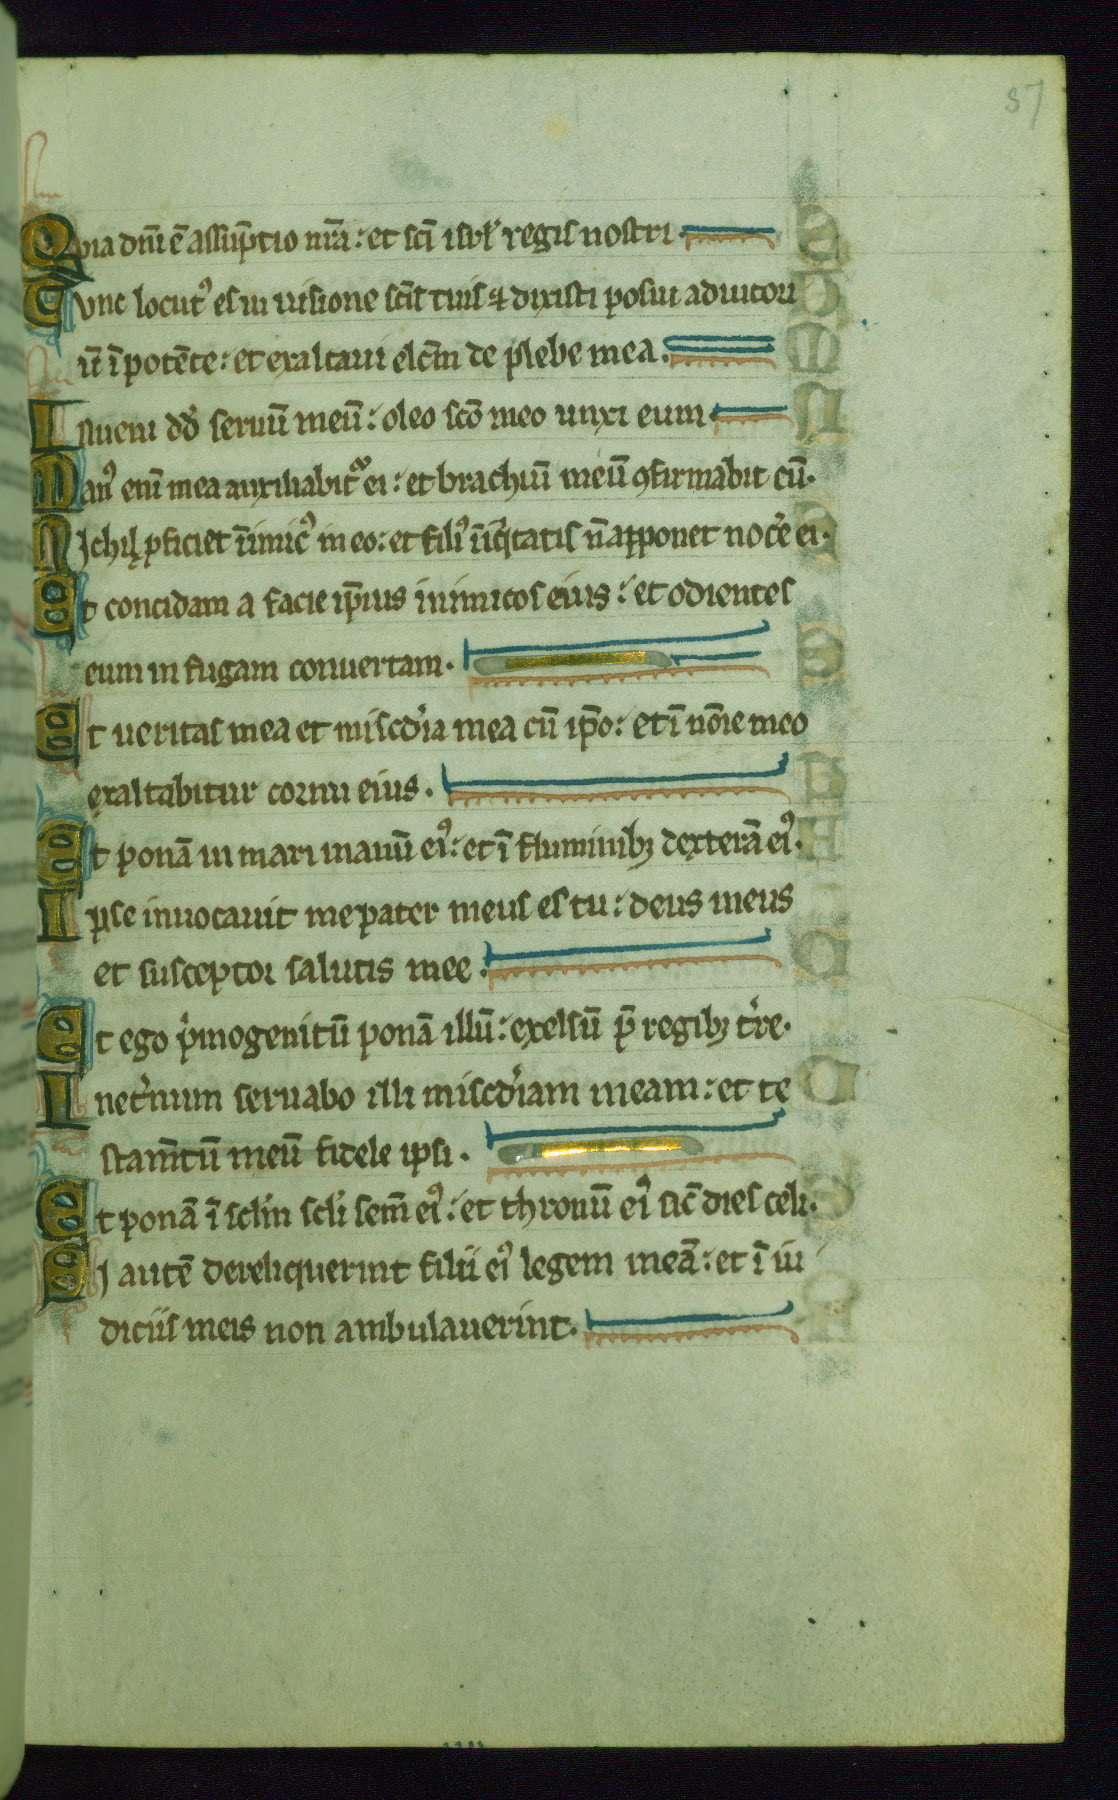 87
Quia dn̄i ē assūptio nr̄a: et sc̄i isrl̓ regis nostri
Tunc locut᾽ es in uisione sc̄is tuis ⁊ dixisti posui adiutori
ū ī potēte: et exaltaui elc̄m de plebe mea.
Inueni dd̓ seruū meū: oleo sc̄o meo unxi eum
Man᾽ eni mea auxiliabit᾽ ei: et brachiū meū ꝯfirmabit eū.
Nichil ꝓficiet inimic᾽ in eo: et fili᾽ īiq̓tatis n̄ apponet noce̓ ei.
Et concidam a facie ip̄ius inimicos eius: et odientes
eum in fugam conuertam.
Et ueritas mea et misc̄dia mea cū ip̄o: et ī noīe meo
exaltabitur cornu eius.
Et ponā in mari manū ei᾽: et ī fluminibꝫ dexterā ei᾽.
Ipse inuocauit me pater meus es tu: deus meus
et susceptor salutis mee.
Et ego p̓mogenitū ponā illū: exelsū p̄ regibꝫ tr̓re.
In et̓num seruabo illi misc̄diam meam: et te
stam̄tū meū fidele ipsi.
Et ponā ī scl̓m scl̓i sem̄ ei᾽: et thronū ei᾽ sic̄ dies celi.
Si autē dereliquerint filii ei᾽ legem meā: et ī iu
diciis meis non ambulauerint.